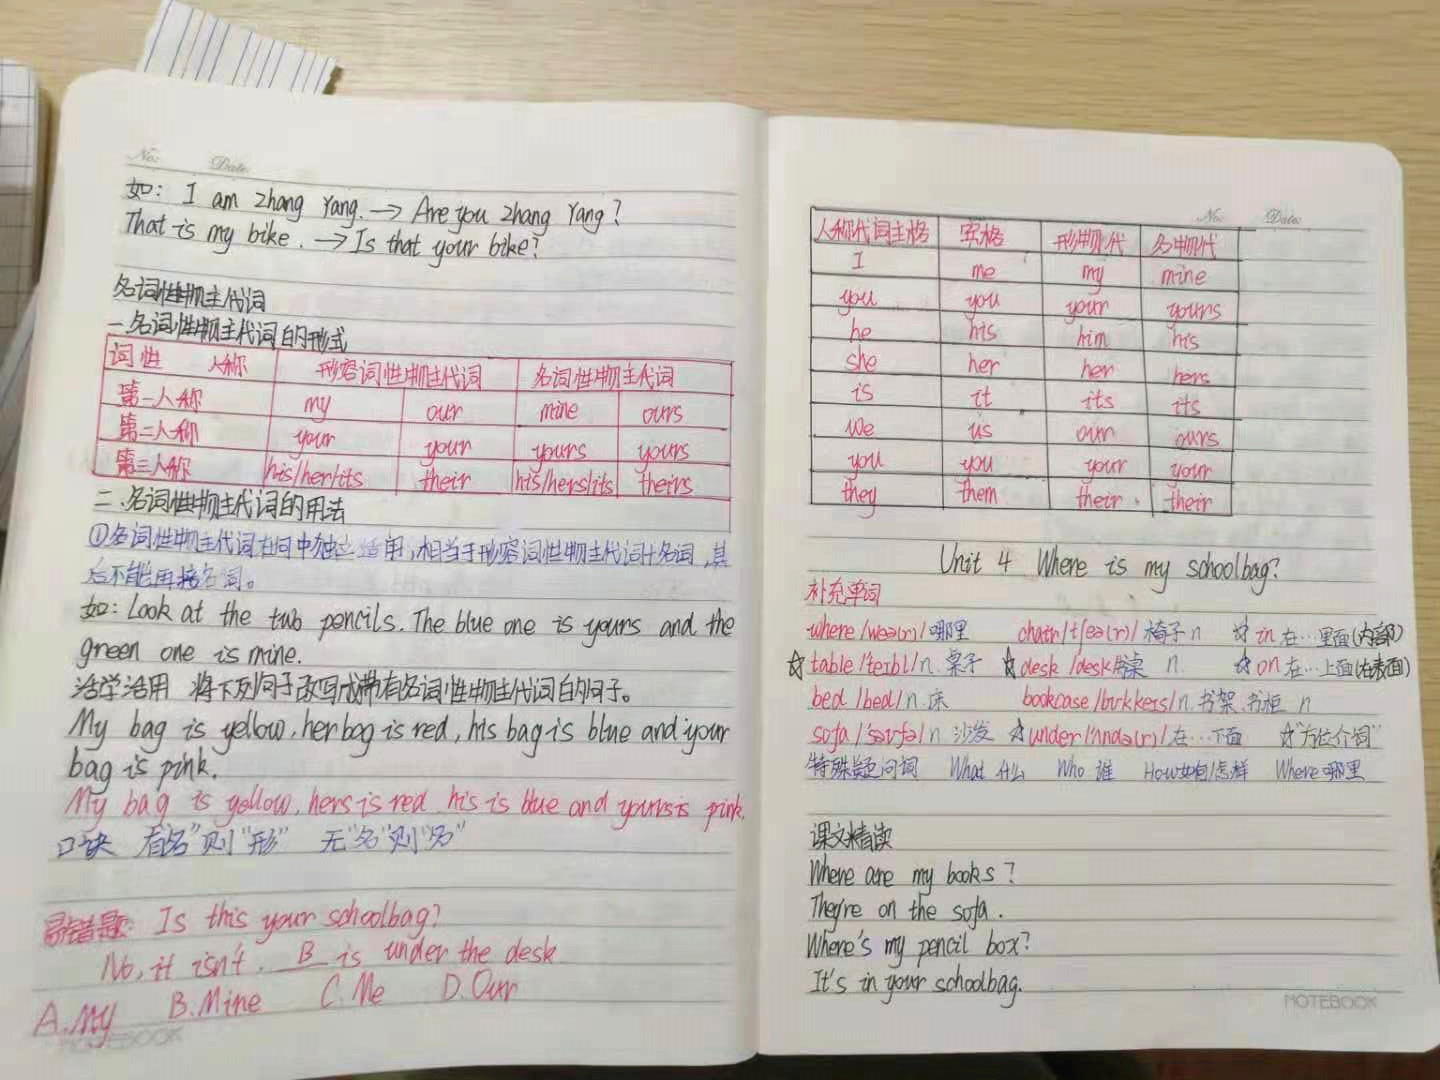 No:   Date.
如: I am Zhang Yang. → Are you Zhang Yang?
That is my bike. → Is that your bike?
名词性物主代词
一.名词性物主代词的形式
词性 人称 形容词性物主代词 名词性物主代词
第一人称 my our mine ours
第二人称 your your yours yours
第三人称 his/her/its their his/hers/its theirs
二.名词性物主代词的用法
①名词性物主代词在句中独立适用,相当于形容词性物主代词+名词,其
后不能再接名词。
如: Look at the two pencils. The blue one is yours and the
green one is mine.
活学活用 将下列句子改写成带有名词性物主代词的句子。
My bag is yellow, her bag is red, his bag is blue and your
bag is pink.
My bag is yellow, hers is red his is blue and yours is pink.
口诀 看"名"则"形" 无"名"则"名"
易错题: Is this your schoolbag?
No, it isn't. B is under the desk
A.My B.Mine C.Me D.Our
NOTEBOOK
No:   Date:
人称代词主格 宾格 形物代 名物代
I me my mine
you you your yours
he his him his
she her her hers
is it its its
we us our ours
you you your your
they them their their
Unit 4 Where is my schoolbag?
补充单词
where /weə(r)/ 哪里 chair /tʃeə(r)/ 椅子 n ☆ in 在…里面(内部)
☆ table /ˈteɪbl/ n. 桌子 ☆ desk /desk/ 书桌 n ☆ on 在…上面(在表面)
bed /bed/ n 床 bookcase n. 书架.书柜 n
sofa /ˈsəʊfə/ n 沙发 ☆ under /ˈʌndə(r)/ 在…下面 ☆"方位介词"
特殊疑问词 What 什么 Who 谁 How 如何/怎样 Where 哪里
课文精读
Where are my books?
They're on the sofa.
Where's my pencil box?
It's in your schoolbag.
NOTEBOOK